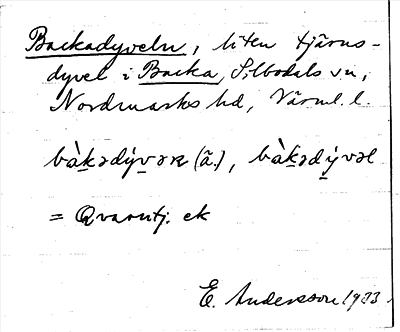 Backadyveln, liten tjärns-
dyvel i Backa, Silbodals sn,
Nordmarks hd, Värml. l.
bàk̲ədẏ́v̲əɴ (ā.), bàk̲ədẏ̲vəl
= Qvarntj. ek
E. Andersson 1933